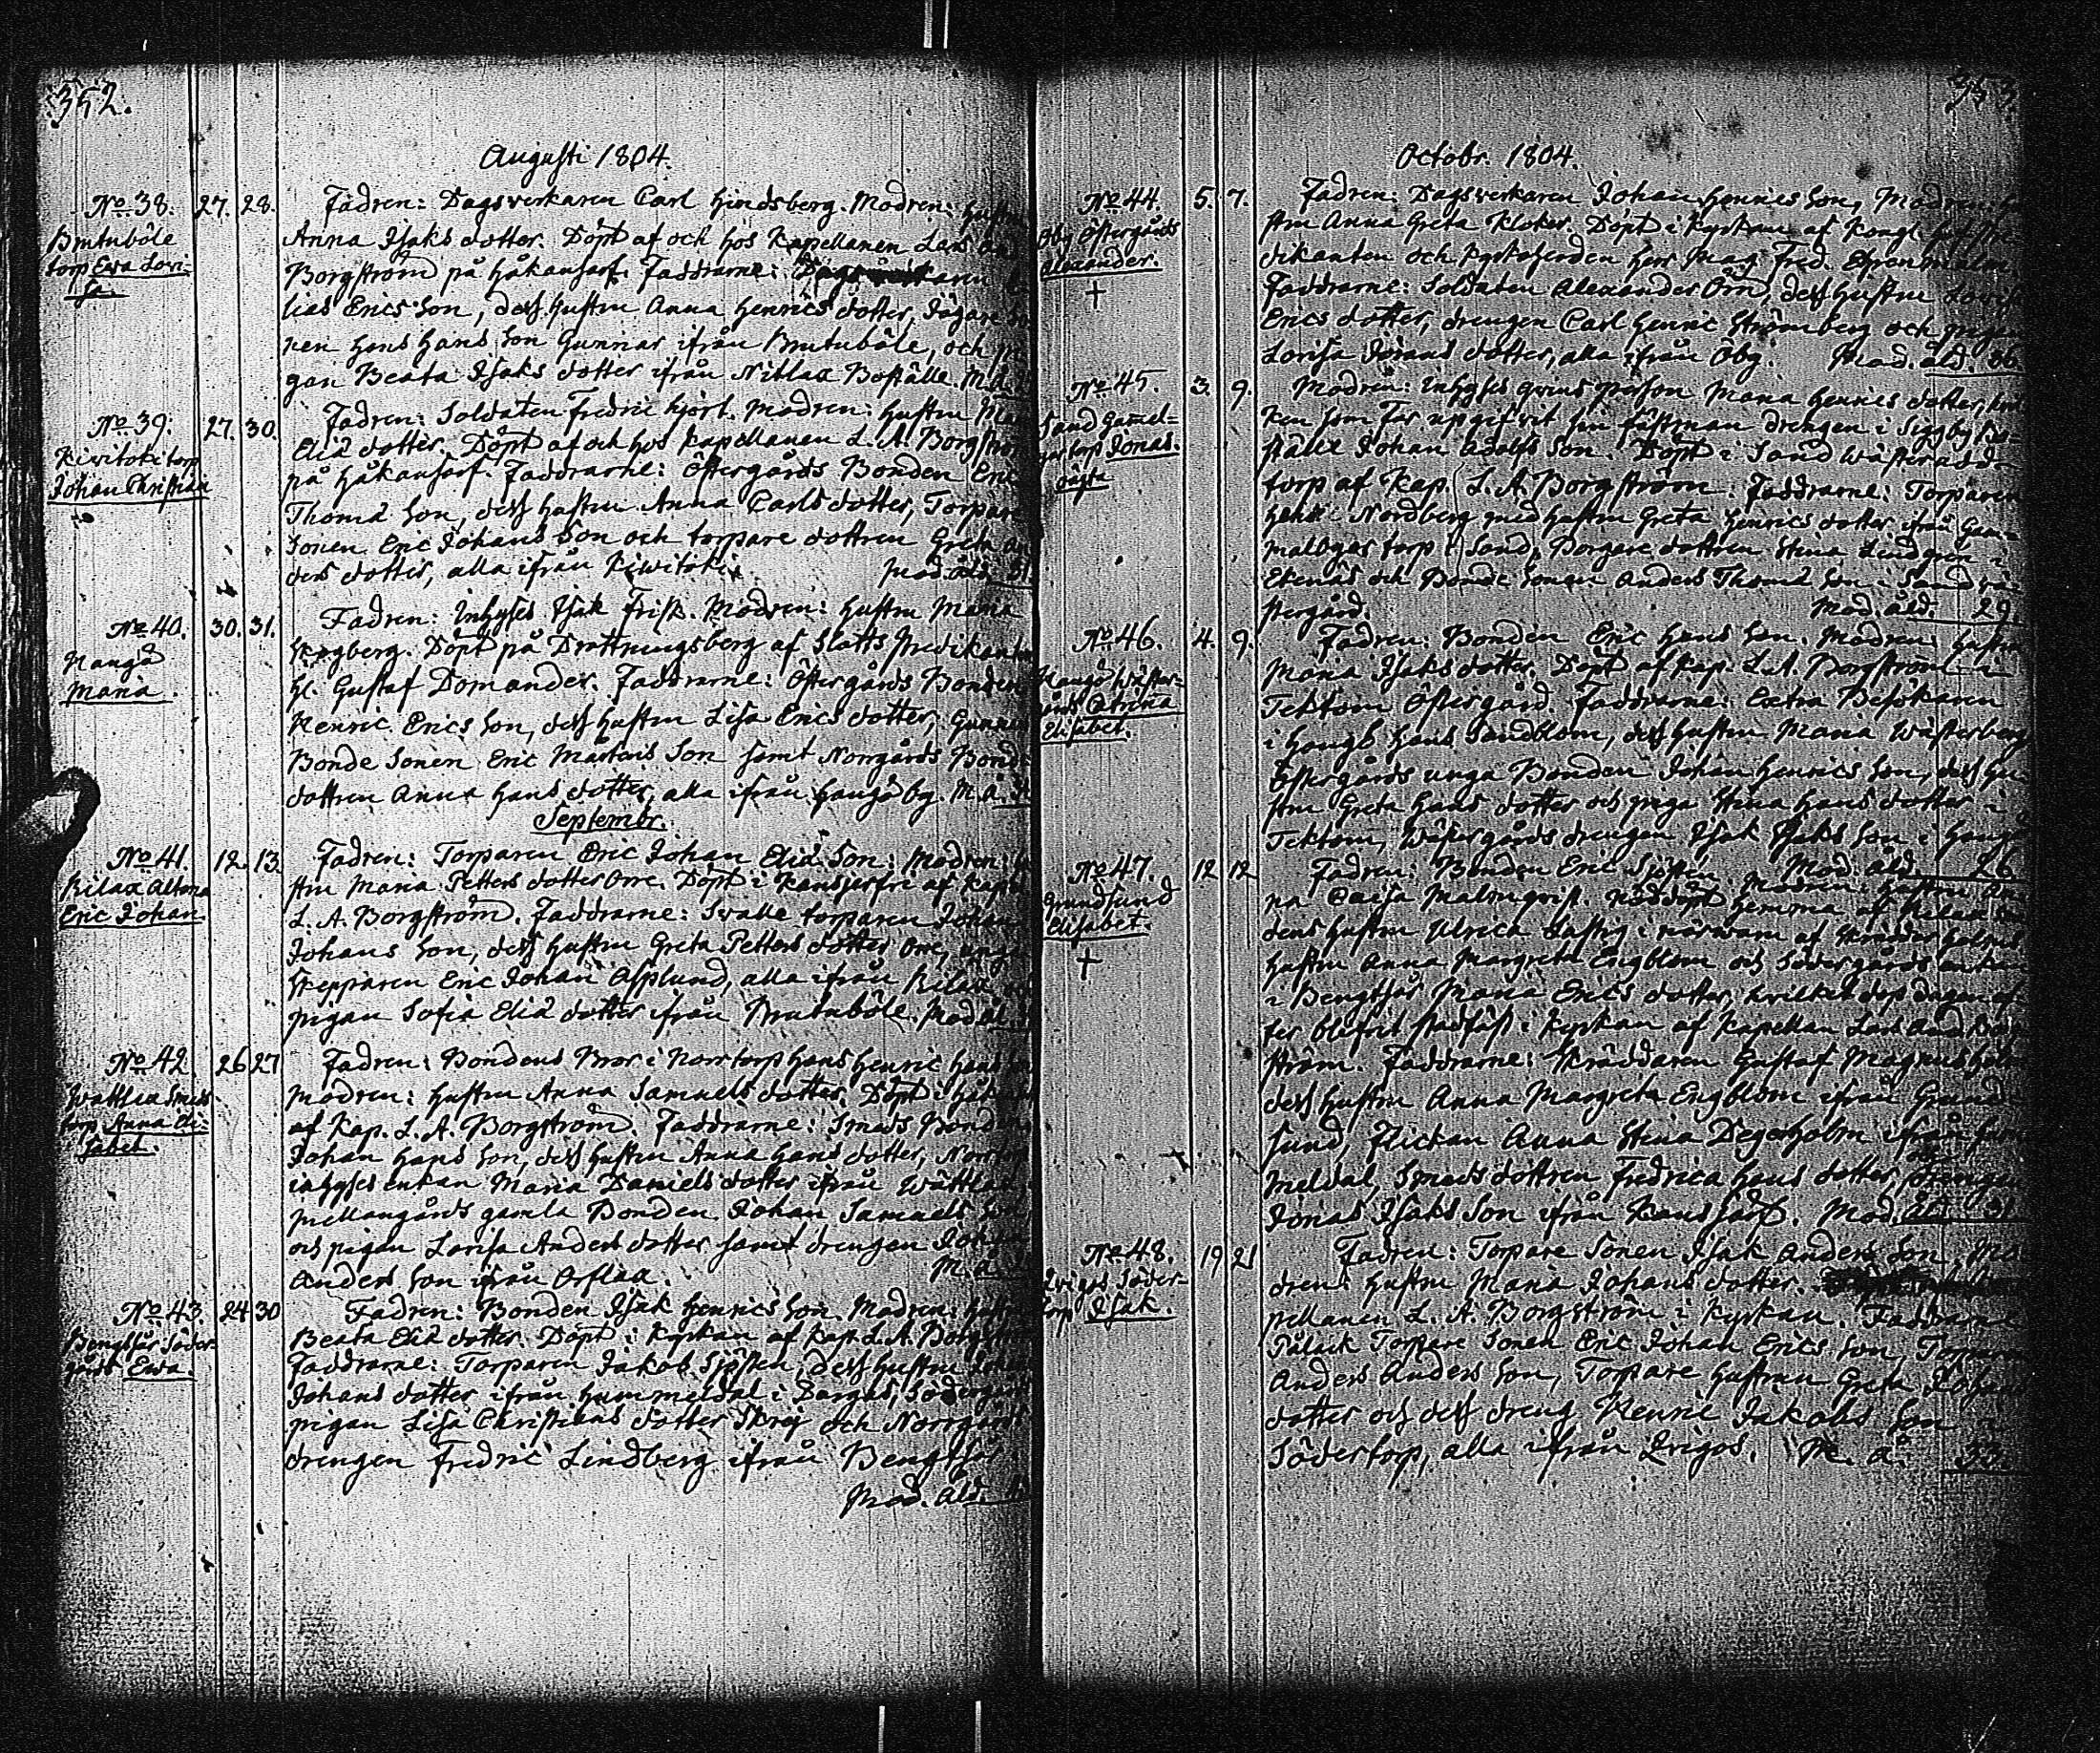 352.
Augusti 1804.
No 38. 27. 28. Fadren: Dagsverkaren Carl Hindsberg. Modren: Hustru
Brutuböle
torp Ewa Lovi-
sa.
Anna Isaks dotter. Döpt af och hos Kapellanen Lars And
Borgström på Håkansarf. Faddrarne:
lias Erics Son, dess hustru Anna Henrics dotter,
nen Hans Hans Son Gunnar ifrån Brutuböle, och pi
gan Beata Isaks dotter ifrån Nitlax Boställe. M. å.
No 39. 27. 30. Fadren: Soldaten Fredric Hjort. Modren: Hustru Ma
Kivitokitorp
Johan Christian
Eliä dotter. Döpt af och hos Kapellanen L. A. Borgström
på Håkansarf. Faddrarne: Östergårds Bonden Eric
Thomä Son, dess hustru Anna Carls dotter, Torpare
Sonen Eric Johans Son och torpare dottren Greta An
ders dotter, alla ifrån Kiwitoki. Mod. åld. 31.
No 40. 30. 31. Fadren: Inhyses Isak Frisk. Modren: Hustru Maria
Hangö
Maria.
Skogberg. Döpt på Drottningsberg af Slotts Predikanten
H. Gustaf Domander. Faddrarne: Östergårds Bonden
Henric Erics Son, dess hustru Lisa Erics dotter, Gunnar
Bonde Sonen Eric Mårtens Son samt Norrgårds Bonde
dottren Anna Hans dotter, alla ifrån Hangöby. M. å.
Septembr.
No 41. 12. 13. Fadren: Torparen Eric Johan Eliä Son. Modren: Hu
Rilax Altona
Eric Johan
stru Maria Petters dotter Orre. Döpt i Kansjerfvi af Kap.
L. A. Borgström. Faddrarne: Svalle torparen Johan
Johans Son, dess hustru Greta Petters dotter Orre, unge
Skepparen Eric Johan Asplund, alla ifrån Rilax och
pigan Sofia Eliä dotter ifrån Brutuböle. Mod. åld.
No 42. 26 27 Fadren: Bondens Bror i Norrtorp Hans Henric Hans
Wättlax Smeds
torp Anna Eli-
sabet.
Modren: Hustru Anna Samuels dotter. Döpt i
af Kap. L. A. Borgström. Faddrarne: Smeds Bonden
Johan Hans Son, dess hustru Anna Hans dotter, Norrtorp
inhyses enkan Maria Daniels dotter ifrån Wättlax
Mellangårds gamla Bonden Johan Samuels Son
och pigan Lovisa Anders dotter samt drengen Johan
Anders Son ifrån Orslax. M. å.
No 43. 24 30 Fadren: Bonden Isak Henrics Son. Modren: Hustru
Bengtsår Söder-
gård Ewa.
Beata Eliä dotter. Döpt i Kyrkan af Kap. L. A. Borgström
Faddrarne: Torparen Jakob Sjösten, dess hustru
Johans dotter ifrån Hummeldal i Bargas, Södergårds
pigan Lisa Christians dotter Skrej och Norrgårds
drengen Fredric Lindberg ifrån Bengtsår.
Mod. åld.
353
Octobr. 1804.
No 44. 5. 7. Fadren: Dagsverkaren Johan Henrics Son, Modren: Hu
Öby Östergårds
Alexander.
+
stru Anna Greta Kloker. Döpt i Kyrkan af Kongl. Hof Pre
dikanten och Kyrkoherden Herr Mag. Fred. Ehrenmalm
Faddrarne: Soldaten Alexander Örn, dess hustru Lovisa
Erics dotter, drengen Carl Henric Strömberg och pigan
Lovisa Johans dotter, alla ifrån Öby. Mod. åld. 36.
No 45. 3. 9. Modren: Inhyses qvins person Maria Henrics dotter, hvil
Sand Gamel-
torp Jonas.
oägta
ken som Far uppgifvit sin fästman drengen i Siggby Bo-
ställe Johan Adolfs Son. Döpt i Sand Wästerudd-
torp af Kap. L. A. Borgström. Faddrarne: Torparen
Nordberg med hustru Greta Henrics dotter ifrån Gam-
torp i Sand, Borgare dottren Stina Lindgren i
Ekenäs och Bonde Sonen Anders Thomä Son i Sand wä-
stergård. Mod. åld. 29.
No 46. 4. 9. Fadren: Bonden Eric Hans Son. Modren: Hustru
Hangö Wäster-
gårds Catrina
Elisabet.
Maria Isaks dotter. Döpt af Kap. L. A. Borgström i
Tektom Östergård. Faddrarne: Extra Besökaren
i Hangö Hans Sandblom, dess hustru Maria Wästerberg
Östergårds unga Bonden Johan Henrics Son, dess hu
stru Greta Hans dotter och piga Stina Hans dotter i
Tektom, Wästergårds drengen Isak Isaks Son i Hangö
Mod. åld. 26
No 47. 12 12 Fadren: Bonden Eric Sjösten. Modren: Hustru An
Grundsund
Elisabet.
+
na Caisa Malmqvist. Nöddöpt hemma af Rilax
dens hustru Ulrica Lustig i närwaro af
hustru Anna Margreta Engblom och Södergårds enkan
i Bengtsår Maria Erics dotter, hvilket dop dagen ef-
ter blifvit stadfäst i Kyrkan af Kapellan Lars And. Borg
ström. Faddrarne: Skräddaren Gustaf Magnus
dess hustru Anna Margreta Engblom ifrån Grund-
sund, Flickan Anna Stina Degerholm ifrån Hum
meldal, Smeds dottren Fredrica Hans dotter, och drengen
Jonas Isaks Son ifrån Kansjärf. Mod. åld. 31.
No 48. 19 21 Fadren: Torpare Sonen Isak Anders Son. Mo
Trigos Söder-
torp Isak.
dren: Hustru Maria Johans dotter.
pellanen L. A. Borgström i Kyrkan. Faddrarne
Torpare Sonen Eric Johan Erics Son, Torparen
Anders Anders Son, Torpare hustrun Greta Johans
dotter och dess dreng Henric Jakobs Son i
Södertorp, alla ifrån Trigos. M. å. 33.